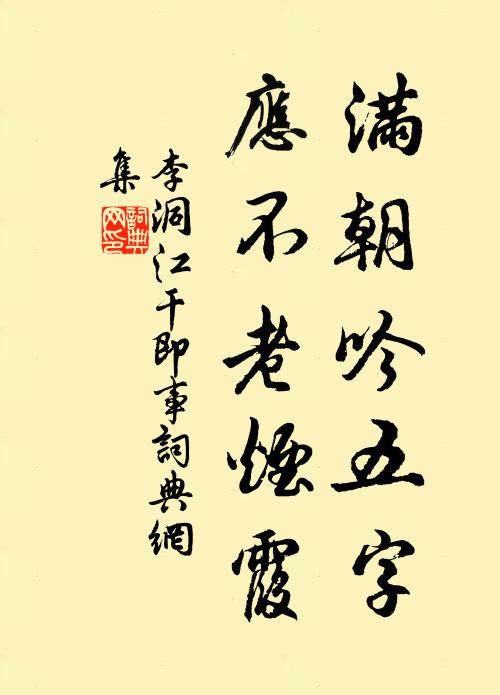 滿朝吟五字
應不老煙霞
李洞江干即事詞典網
集
詞典
网印